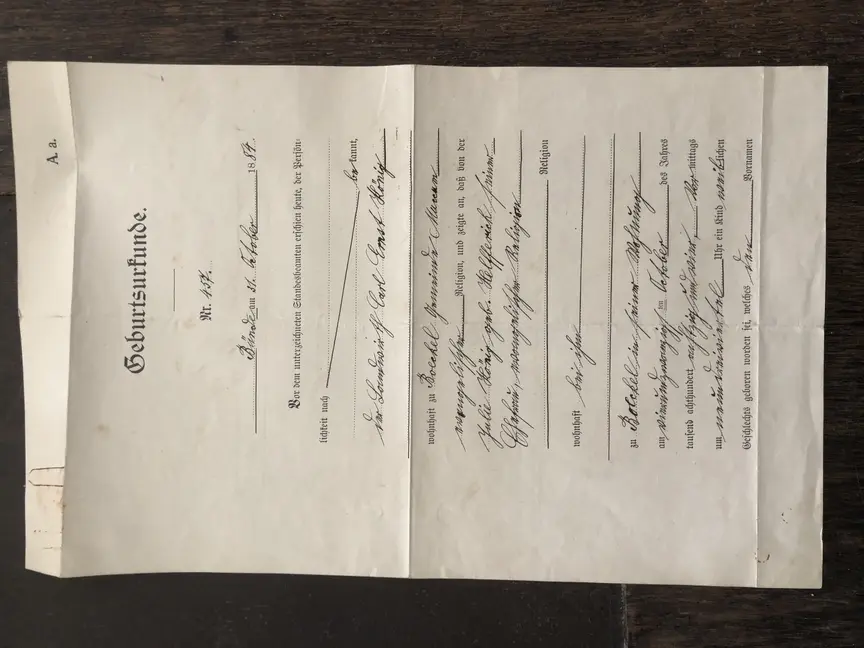 A. a.
Geburtsurkunde.
Nr. 157.
Bünde am 31. October 1884.
Vor dem unterzeichneten Standesbeamten erschien heute, der Persön-
lichkeit nach
bekannt,
der Landwirth Carl Ernst König
wohnhaft zu Bolchel Gemeinde Muccum
evangelischer Religion, und zeigte an, daß von der
Julie König geb. Helfferich seiner
Ehefrau, evangelischer Religion
Religion
wohnhaft bei ihm
zu Bolchel in seiner Wohnung
am vierundzwanzig ten October des Jahres
tausend achthundert achtzig und vier, Vor mittags
um neun dreiviertel Uhr ein Kind weiblichen
Geschlechts geboren worden sei, welches den Vornamen